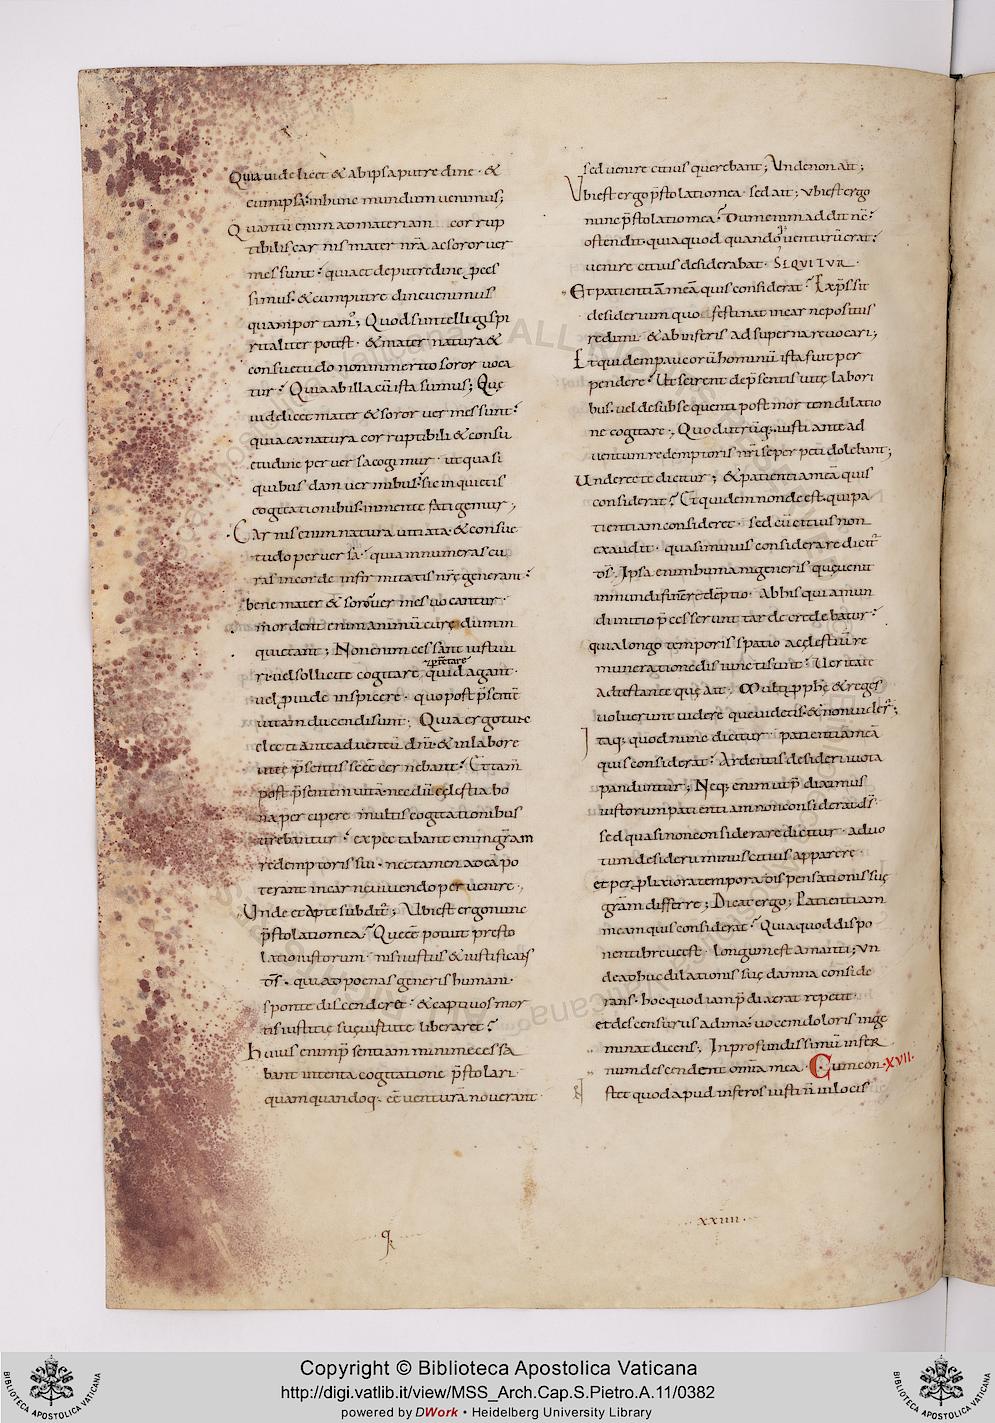 Quia uidelicet & ab ipsa putredine · &
cum ipsa in hunc mundum uenimus;
Quantū enim ad materiam cor rup
tibilis car nis mater nr̄a ac soror ver
mes sunt: quia et de putredine ꝓces
simus · & cum putredine uenimus
quam portam'; Quod si intelligi spi
ritaliter potest · & mater natura &
consuetudo non inmerito soror uoca
tur? Quia ab illa cū ista sumus; Quę
uidelicet mater & soror uermes sunt:
quia ex natura corruptibili & consu
etudine peruersa cogimur · ut quasi
quibusdam uermibus: sic inquietis
cogitationibus in mente fatigemur;
Carnis enim natura uitiata & consue
tudo peruersa: quia innumeras cu
ras in corde infirmitatis nr̄ę generant:
bene mater & soror uermes uocantur ·
mordent enim animū curę dum in
quietant; Non enim cessant iusti ui
ri uel sollicite cogitare quid agant ·
uel ꝓuide inspicere · quo post p̄sentē
uitam ducendi sunt; Quia ergo ture
electi ante aduentū dn̄i · & in labore
uitę p̄sentis se eē cernebant: Et tam̄
post p̄sentem uitā necdū cęlestia bo
na percipere · multis cogitationibus
urebantur: expectabant enim gr̄am
redemptoris sui · nec tamen ad eā po
terant in carne uiuendo peruenire;
Unde et apte subditr̄; Ubi est ergo nunc
p̄stolatio mea? Quę eē potuit pręsto
latio iustorum · nisi iustus & iustificans
ds̄ · qui ad poenas generis humani ·
sponte discenderet: & captiuos mor
tis iustitię suę uirtute liberaret?
Huius enim p̄sentiam minime cessa
bant intenta cogitatione p̄stolari ·
quam quandoq; eē uenturā nouerant ·
sed uenire citius querebant; Unde non ait;
Ubi est ergo p̄stolatio mea · sed ait; ubi est ergo
nunc p̄stolatio mea? Dum enim addit nc̄:
ostendit · quia quod quandoq; uenturū erat:
uenire citius desiderabat · SEQUITUR ·
Et patientiā meā quis considerat? Expssit
desiderium quo festinat in carne positus
redimi · & ab inferis ad superna reuocari;
Et quidem paucorū hominū ista fuit per
pendere: Ut scirent de p̄sentis uitę labori
bus · uel de subsequenti post mortem dilatio
ne cogitare; Quod utrūq; iusti ante ad
uentum redemptoris nr̄i se perpeti dolebant;
Unde recte dicitur; & patientiā meā quis
considerat? Et quidem non deest · qui pa
tientiam consideret · sed cū citius non
exaudit · quasi minus considerare dicit͛
ds̄ · Ipsa enim humani generis quę uenit
in mundi finē redēptio · ab his qui a mun
di initio p̄cesserunt tarde credebatur:
quia longo temporis spatio a cęlestiū re
muneratione disiuncti sunt: Veritate
adtestante quę ait · Multi ꝓphę & reges
uoluerunt uidere que uidetis · & non uider̄;
Itaq; quod nunc dicitur · patientiā meā
quis considerat? Ardentis desiderii uota
panduntur; Neq; enim ut p̄diximus
iustorum patientiam non considerat ds̄ ·
sed quasi non considerare dicitur · ad uo
tum desiderii minus citius apparere ·
et per ꝓlixiora tempora dispensationis suę
gr̄am differre; Dicat ergo; Patientiam
meam quis considerat? Quia quod dispo
nenti breue est · longum est amanti; Un
de adhuc dilationis suę damna conside
rans · hoc quod iam p̄dixerat repetit ·
et descensurus ad ima: uocem doloris inge
minat dicens; In profundissimū infer
num descendent om̄ia mea · Cum con · XVII ·
stet quod apud inferos iusti n̄ in locis
xxiiii
Copyright © Biblioteca Apostolica Vaticana
http://digi.vatlib.it/view/MSS_Arch.Cap.S.Pietro.A.11/0382
powered by DWork • Heidelberg University Library
BIBLIOTECA APOSTOLICA VATICANA
BIBLIOTECA APOSTOLICA VATICANA